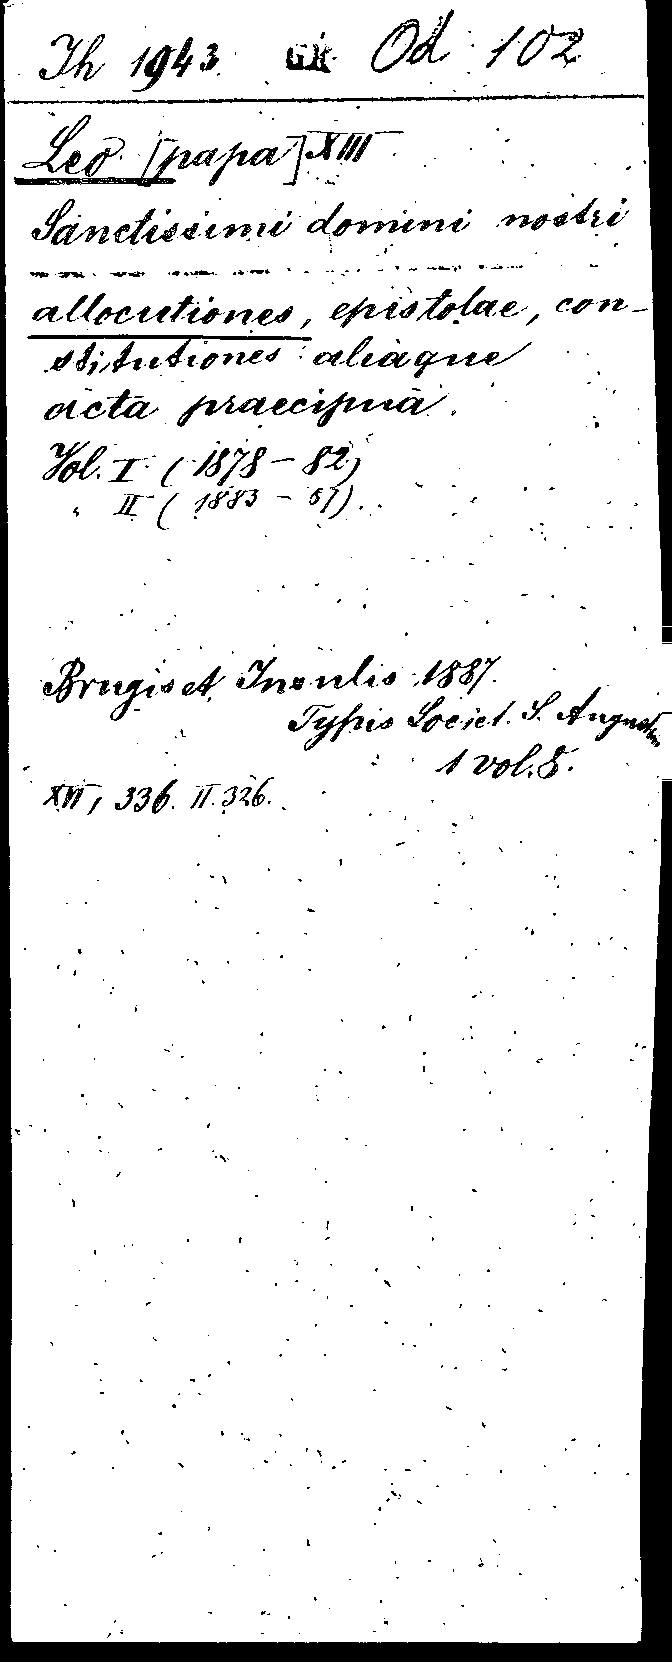 Th 1943 Od 102
Leo [papa] XIII
Sanctissimi domini nostri
allocutiones, epistolae, con-
stitutiones aliaque
acta praecipua.
Vol. I. (1878-82)
" II (1883-87).
Brugis et Insulis 1887.
Typis Societ. S. Augustin
1 vol. 8.
XVI, 336. II. 326.